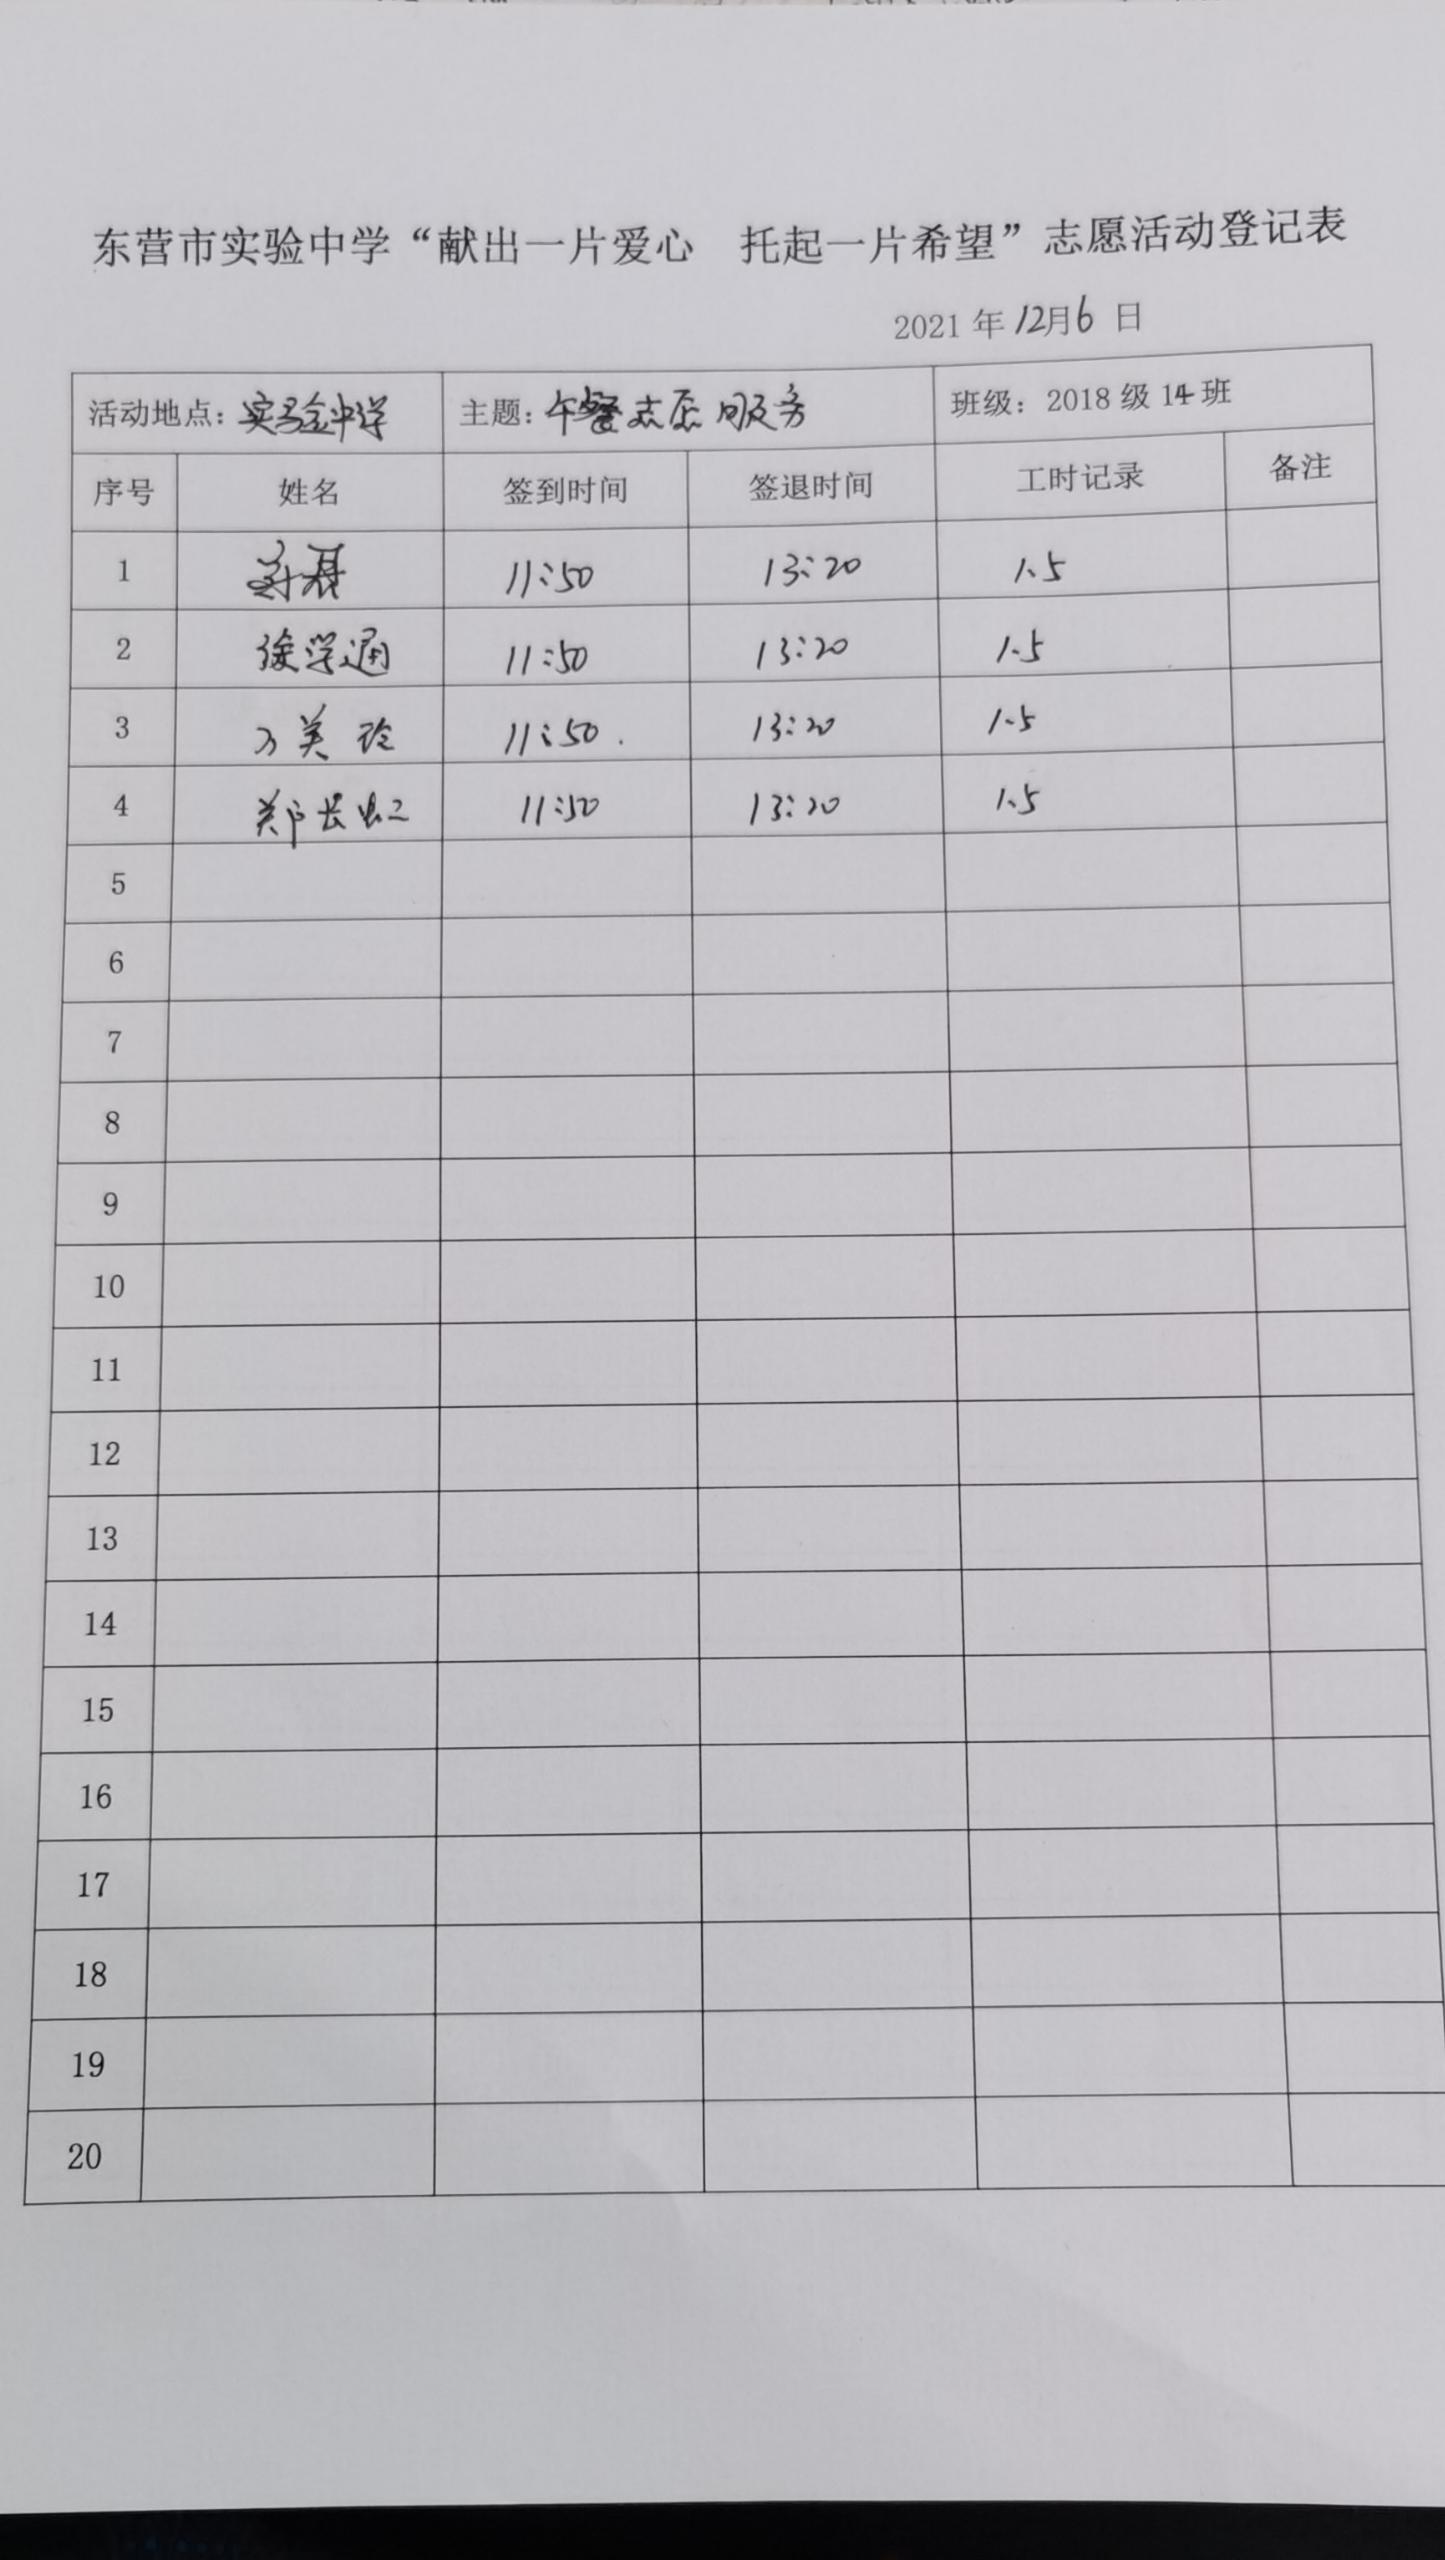 东营市实验中学“献出一片爱心 托起一片希望”志愿活动登记表
2021 年 12月6 日
活动地点：实验中学 主题：午餐志愿服务 班级：2018 级 14 班
序号 姓名 签到时间 签退时间 工时记录 备注
1 11:50 13:20 1.5
2 徐学通 11:50 13:20 1.5
3 万美玲 11:50. 13:20 1.5
4 郑长虹 11:50 13:20 1.5
5
6
7
8
9
10
11
12
13
14
15
16
17
18
19
20